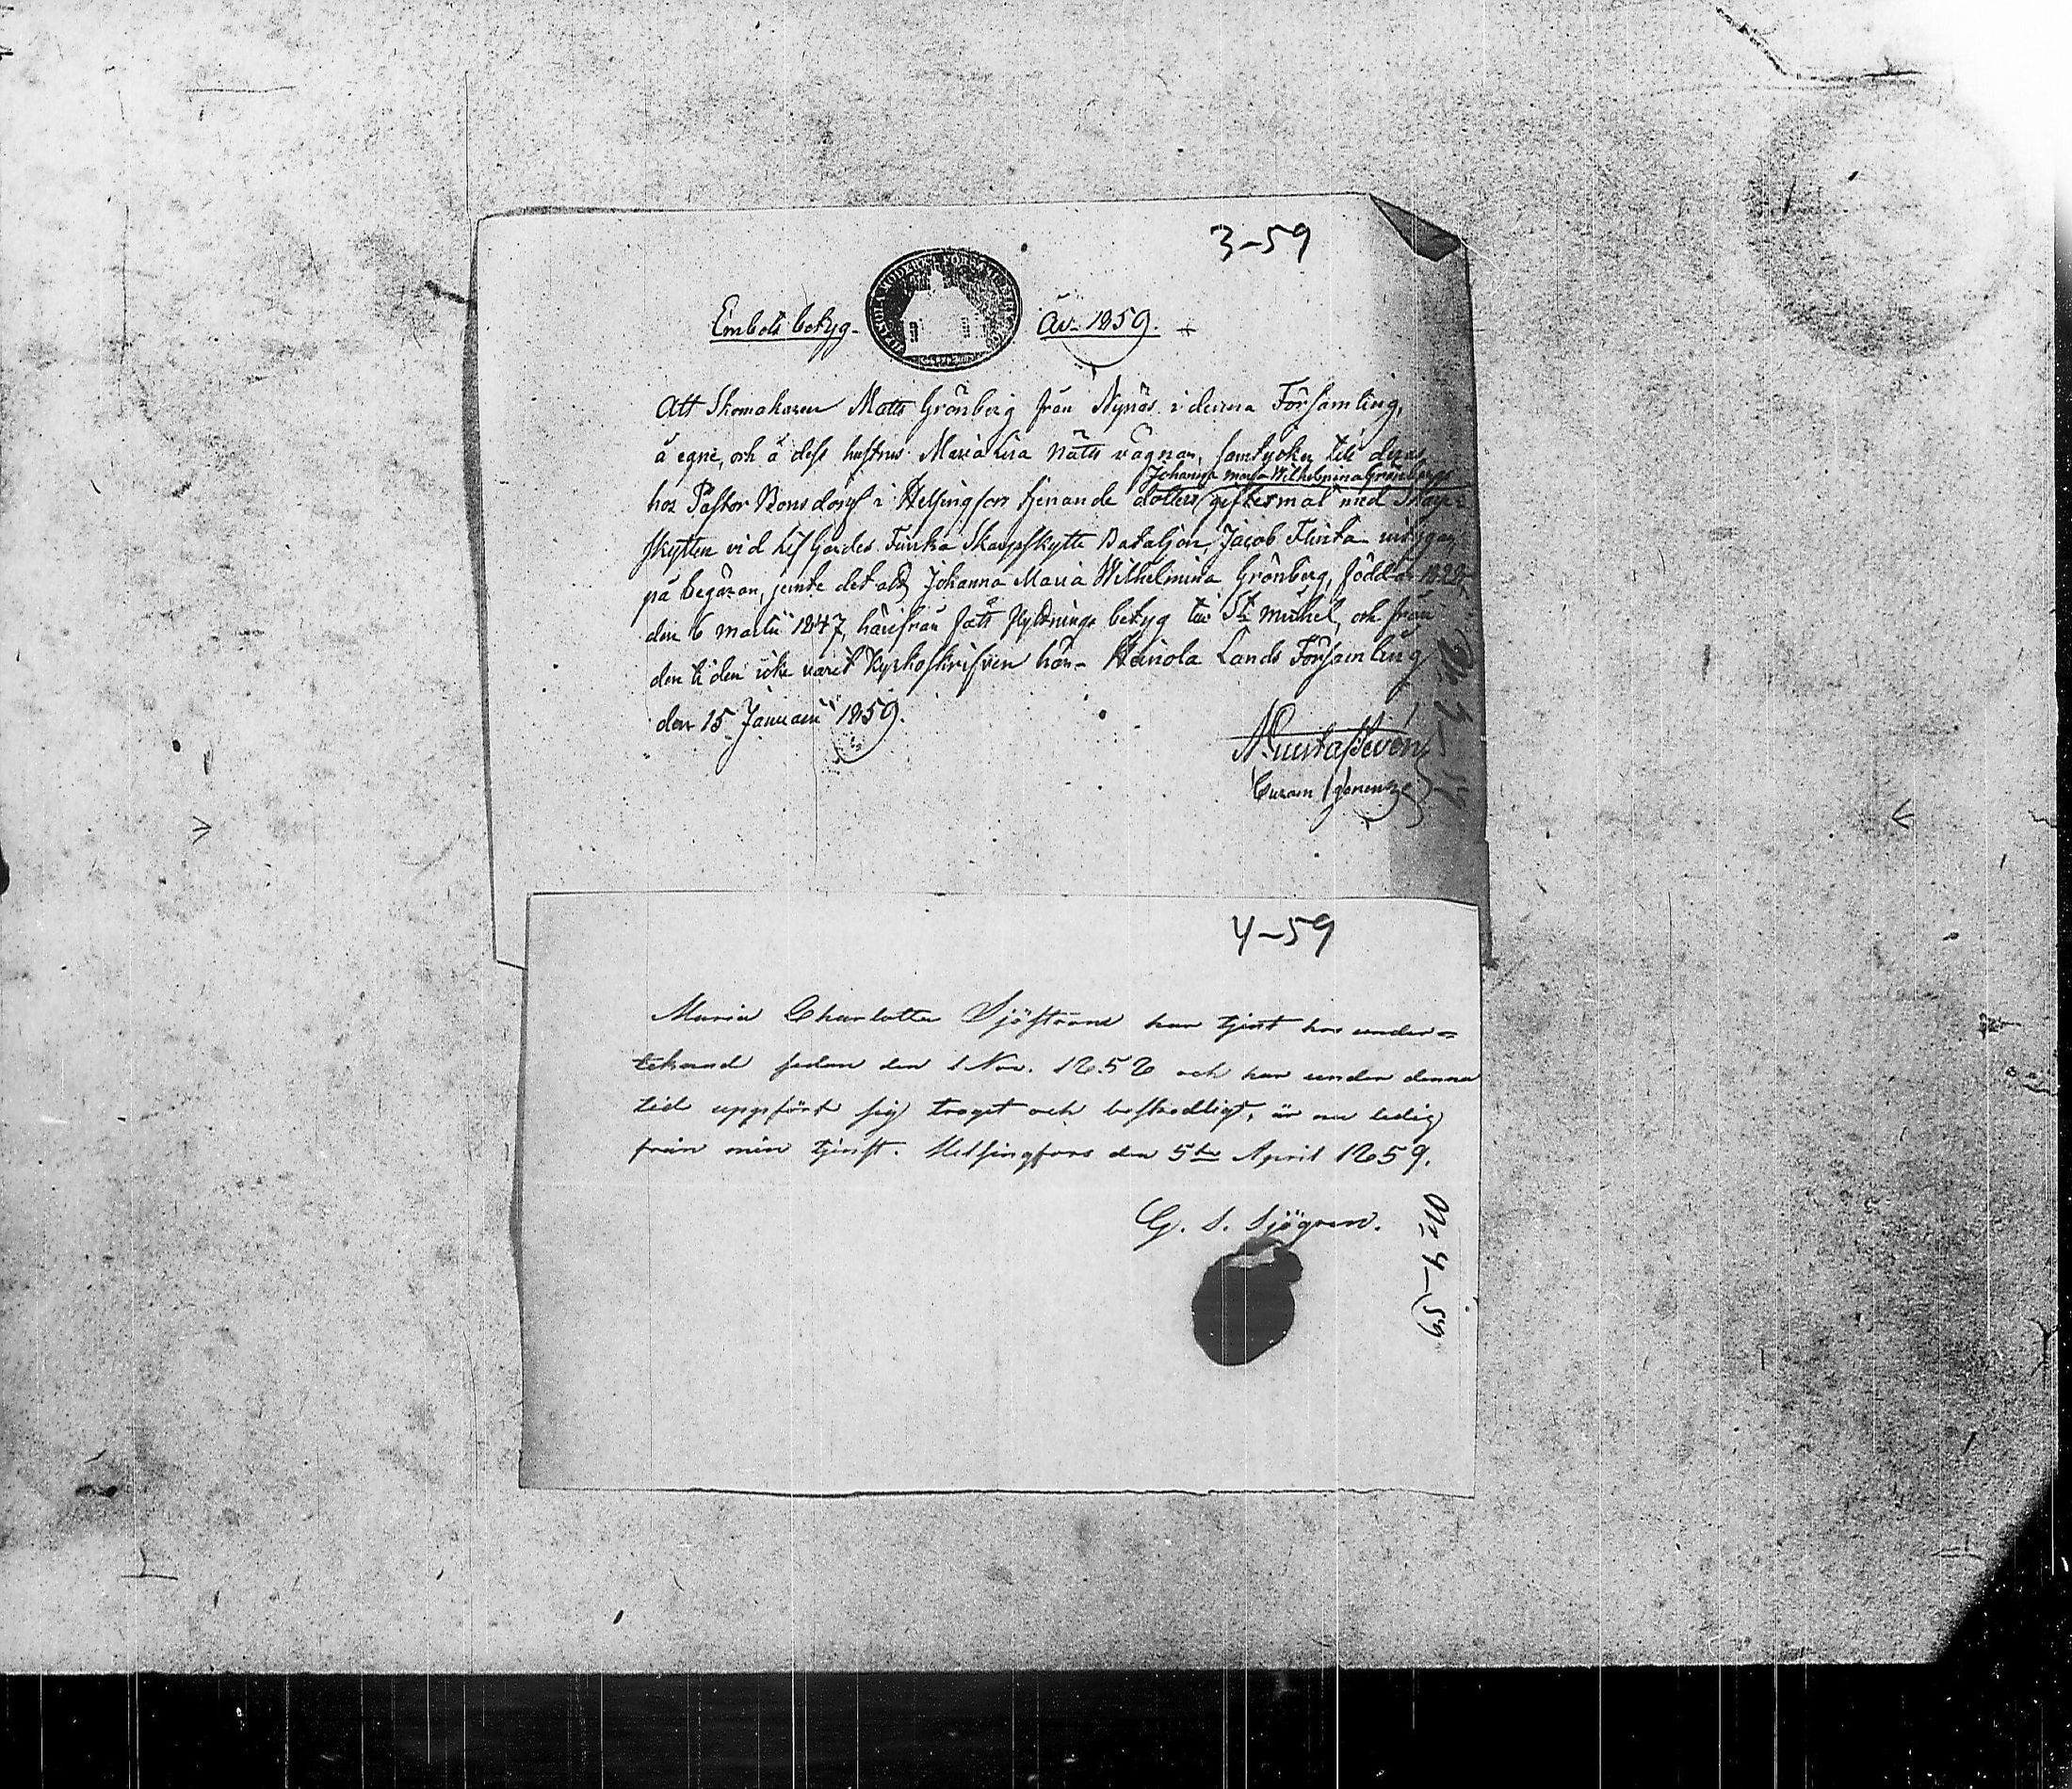 3-59
Embets betyg- År 1859.
Att Skomakaren Matts Grönberg från Nynäs i denna Församling,
å egne, och å dess hustrus Maria Lisa Mats vägnar, samtycker till deras
Johanna Maria Wilhelmina Grönbergs
hos Pastor Bonsdorff i Helsingfors tjenande dotters giftermål med Skarp-
skytten vid Lif Gardes Finska Skarpskytte Bataljon, Jacob Flinta intygas
på begäran, jemte det att Johanna Maria Wilhelmina Grönberg, född år
den 6 martii 1847, härifrån fått flyttnings betyg till St Michel, och från
den tiden icke varit kyrkoskrifven här- Heinola Lands Församling
den 15 Januarii 1859.
4-59
Maria Charlotta Sjöström har tjent hos under-
teknad sedan den 1 Nov. 1858 och har under denna
tid uppfört sig troget och beskedligt, är nu ledig
från min tjenst. Helsingfors den 5te April 1859.
G. S. Sjögren.
No 4-59